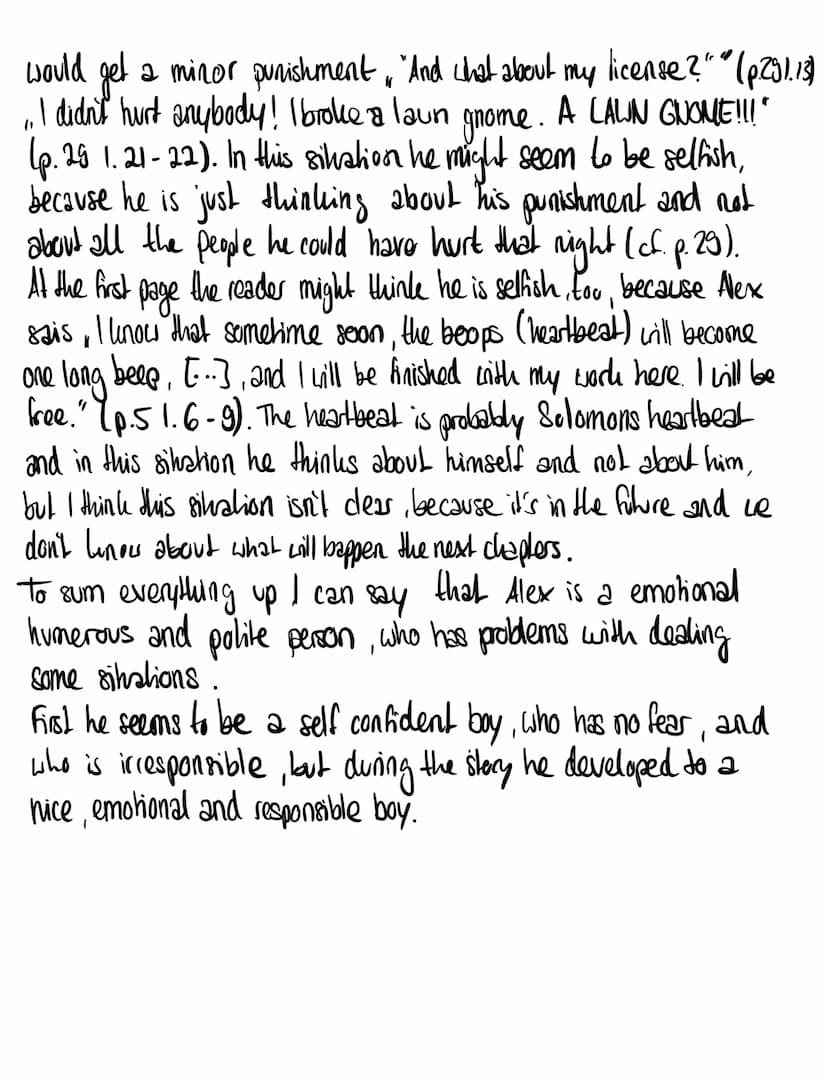 would get a minor punishment „"And what about my license?"" (p.29 l.13)
„I didn't hurt anybody! I broke a lawn gnome. A LAWN GNOME!!!"
(p. 29 l. 21-22). In this situation he might seem to be selfish,
because he is just thinking about his punishment and not
about all the people he could have hurt that night (cf. p. 29).
At the first page the reader might think he is selfish, too, because Alex
sais „I know that sometime soon, the beeps (heartbeat) will become
one long beep, [...], and I will be finished with my work here. I will be
free." (p.5 l. 6-9). The heartbeat is probably Solomons heartbeat
and in this situation he thinks about himself and not about him,
but I think this situation isn't clear, because it's in the future and we
don't know about what will happen the next chapters.
To sum everything up I can say that Alex is a emotional
humerous and polite person, who has problems with dealing
some situations.
First he seems to be a self confident boy, who has no fear, and
who is irresponsible, but during the story he developed to a
nice, emotional and responsible boy.